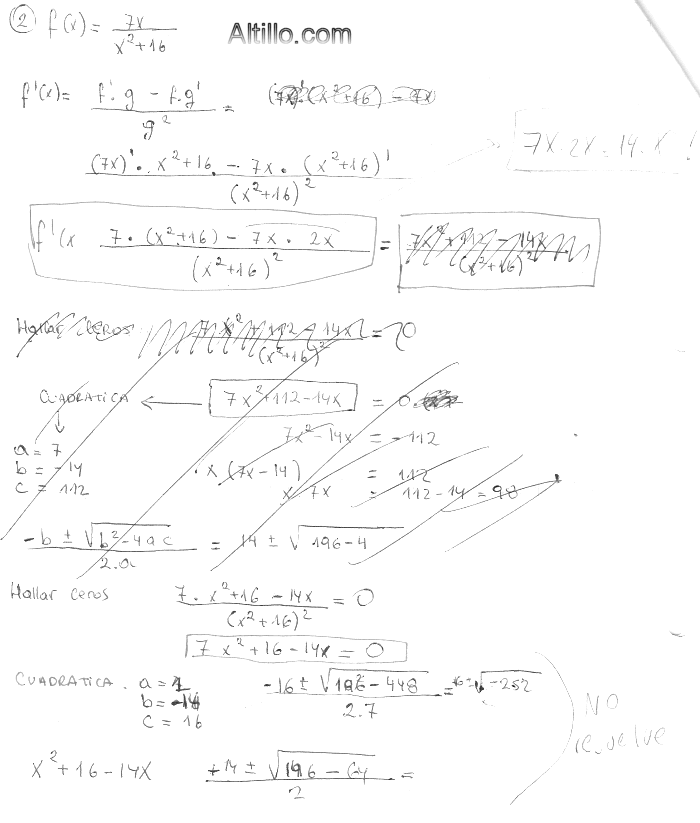 ② f(x) = 7x / x²+16
Altillo.com
f'(x) = f'. g - f.g' / g² = (7x)'.(x²+16) - 7x
7x.2x=14.x !
(7x)'. x²+16 - 7x. (x²+16)' / (x²+16)²
f'(x 7.(x²+16) - 7x. 2x / (x²+16)² = 7x²+112 - 14x / (x²+16)²
Hallar ceros 7x²+112 - 14x / (x²+16)² = 0
CUADRATICA ← 7x²+112-14x = 0.
7x²-14x = -112
a = 7
b = -14
c = 112
x (7x-14) = 112
x 7x = 112-14 = 98
-b ± √b²-4ac / 2.a = 14 ± √196-4
Hallar ceros 7. x²+16 - 14x / (x²+16)² = 0
7 x²+16-14x = 0
CUADRATICA. a = 1
b = -14
c = 16
-16 ± √196-448 / 2.7 = √-252
NO
resuelve
x²+16-14x +14 ± √196 - 64 / 2 =